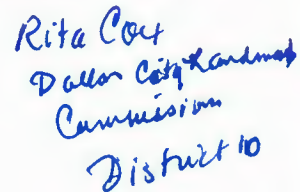 Rita Cox
Dallas City Landmark
Commission
District 10